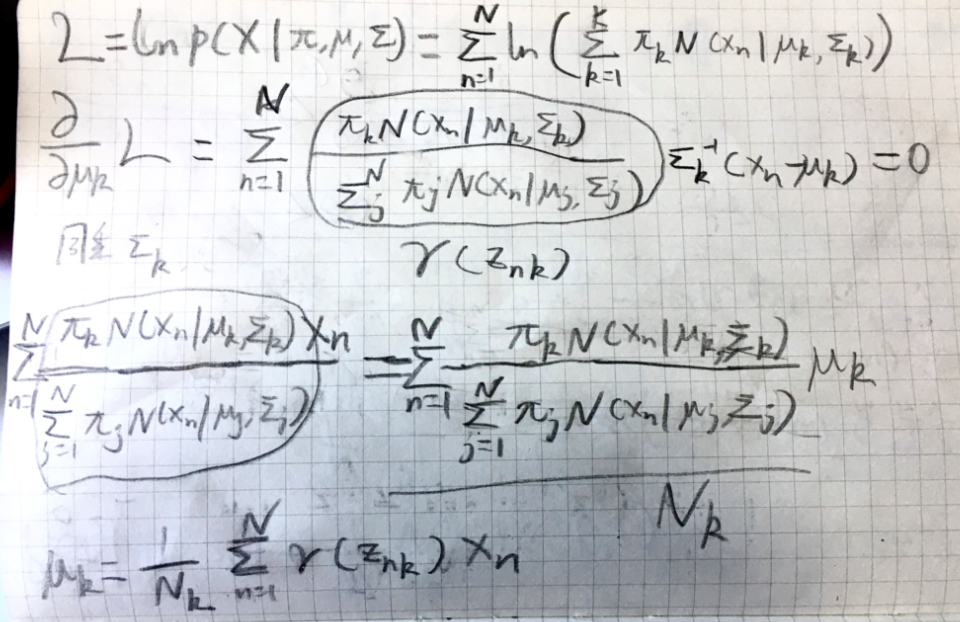 L = ln p(X | π, μ, Σ) = Σ_{n=1}^{N} ln ( Σ_{k=1}^{K} π_k N(x_n | μ_k, Σ_k) )
∂/∂μ_k L = Σ_{n=1}^{N} ( π_k N(x_n | μ_k, Σ_k) / Σ_j^N π_j N(x_n | μ_j, Σ_j) ) Σ_k^{-1} (x_n - μ_k) = 0
Σ_k γ(z_{nk})
Σ_{n=1}^{N} π_k N(x_n | μ_k, Σ_k) x_n / Σ_{j=1}^{N} π_j N(x_n | μ_j, Σ_j) = Σ_{n=1}^{N} π_k N(x_n | μ_k, Σ_k) / Σ_{j=1}^{N} π_j N(x_n | μ_j, Σ_j) μ_k
N_k
μ_k = 1/N_k Σ_{n=1}^{N} γ(z_{nk}) x_n